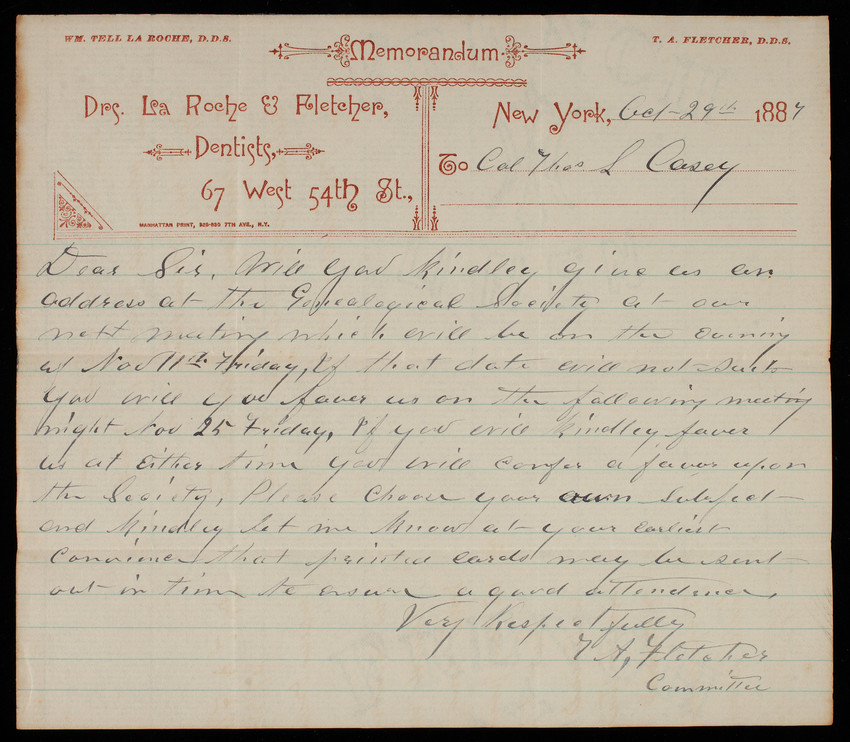 WM. TELL LA ROCHE, D.D.S.
Memorandum
T. A. FLETCHER, D.D.S.
Drs. La Roche & Fletcher,
Dentists,
67 West 54th St.,
MANHATTAN PRINT, 7TH AVE., N.Y.
New York, Oct 29th 1887
To Col Thos L Casey
Dear Sir, Will you kindley give us an
address at the Genealogical Society at our
next meeting which will be on the evening
of Nov 11th Friday, If that date will not suit
you will you faver us on the following meeting
night Nov 25 Friday, If you will kindley faver
us at either time you will confer a favor upon
the Society, Please choose your own subject
and kindley let me know at your earliest
convience that printed cards may be sent
out in time to ensure a good attendence,
Very Respectfully
T A, Fletcher
Committee